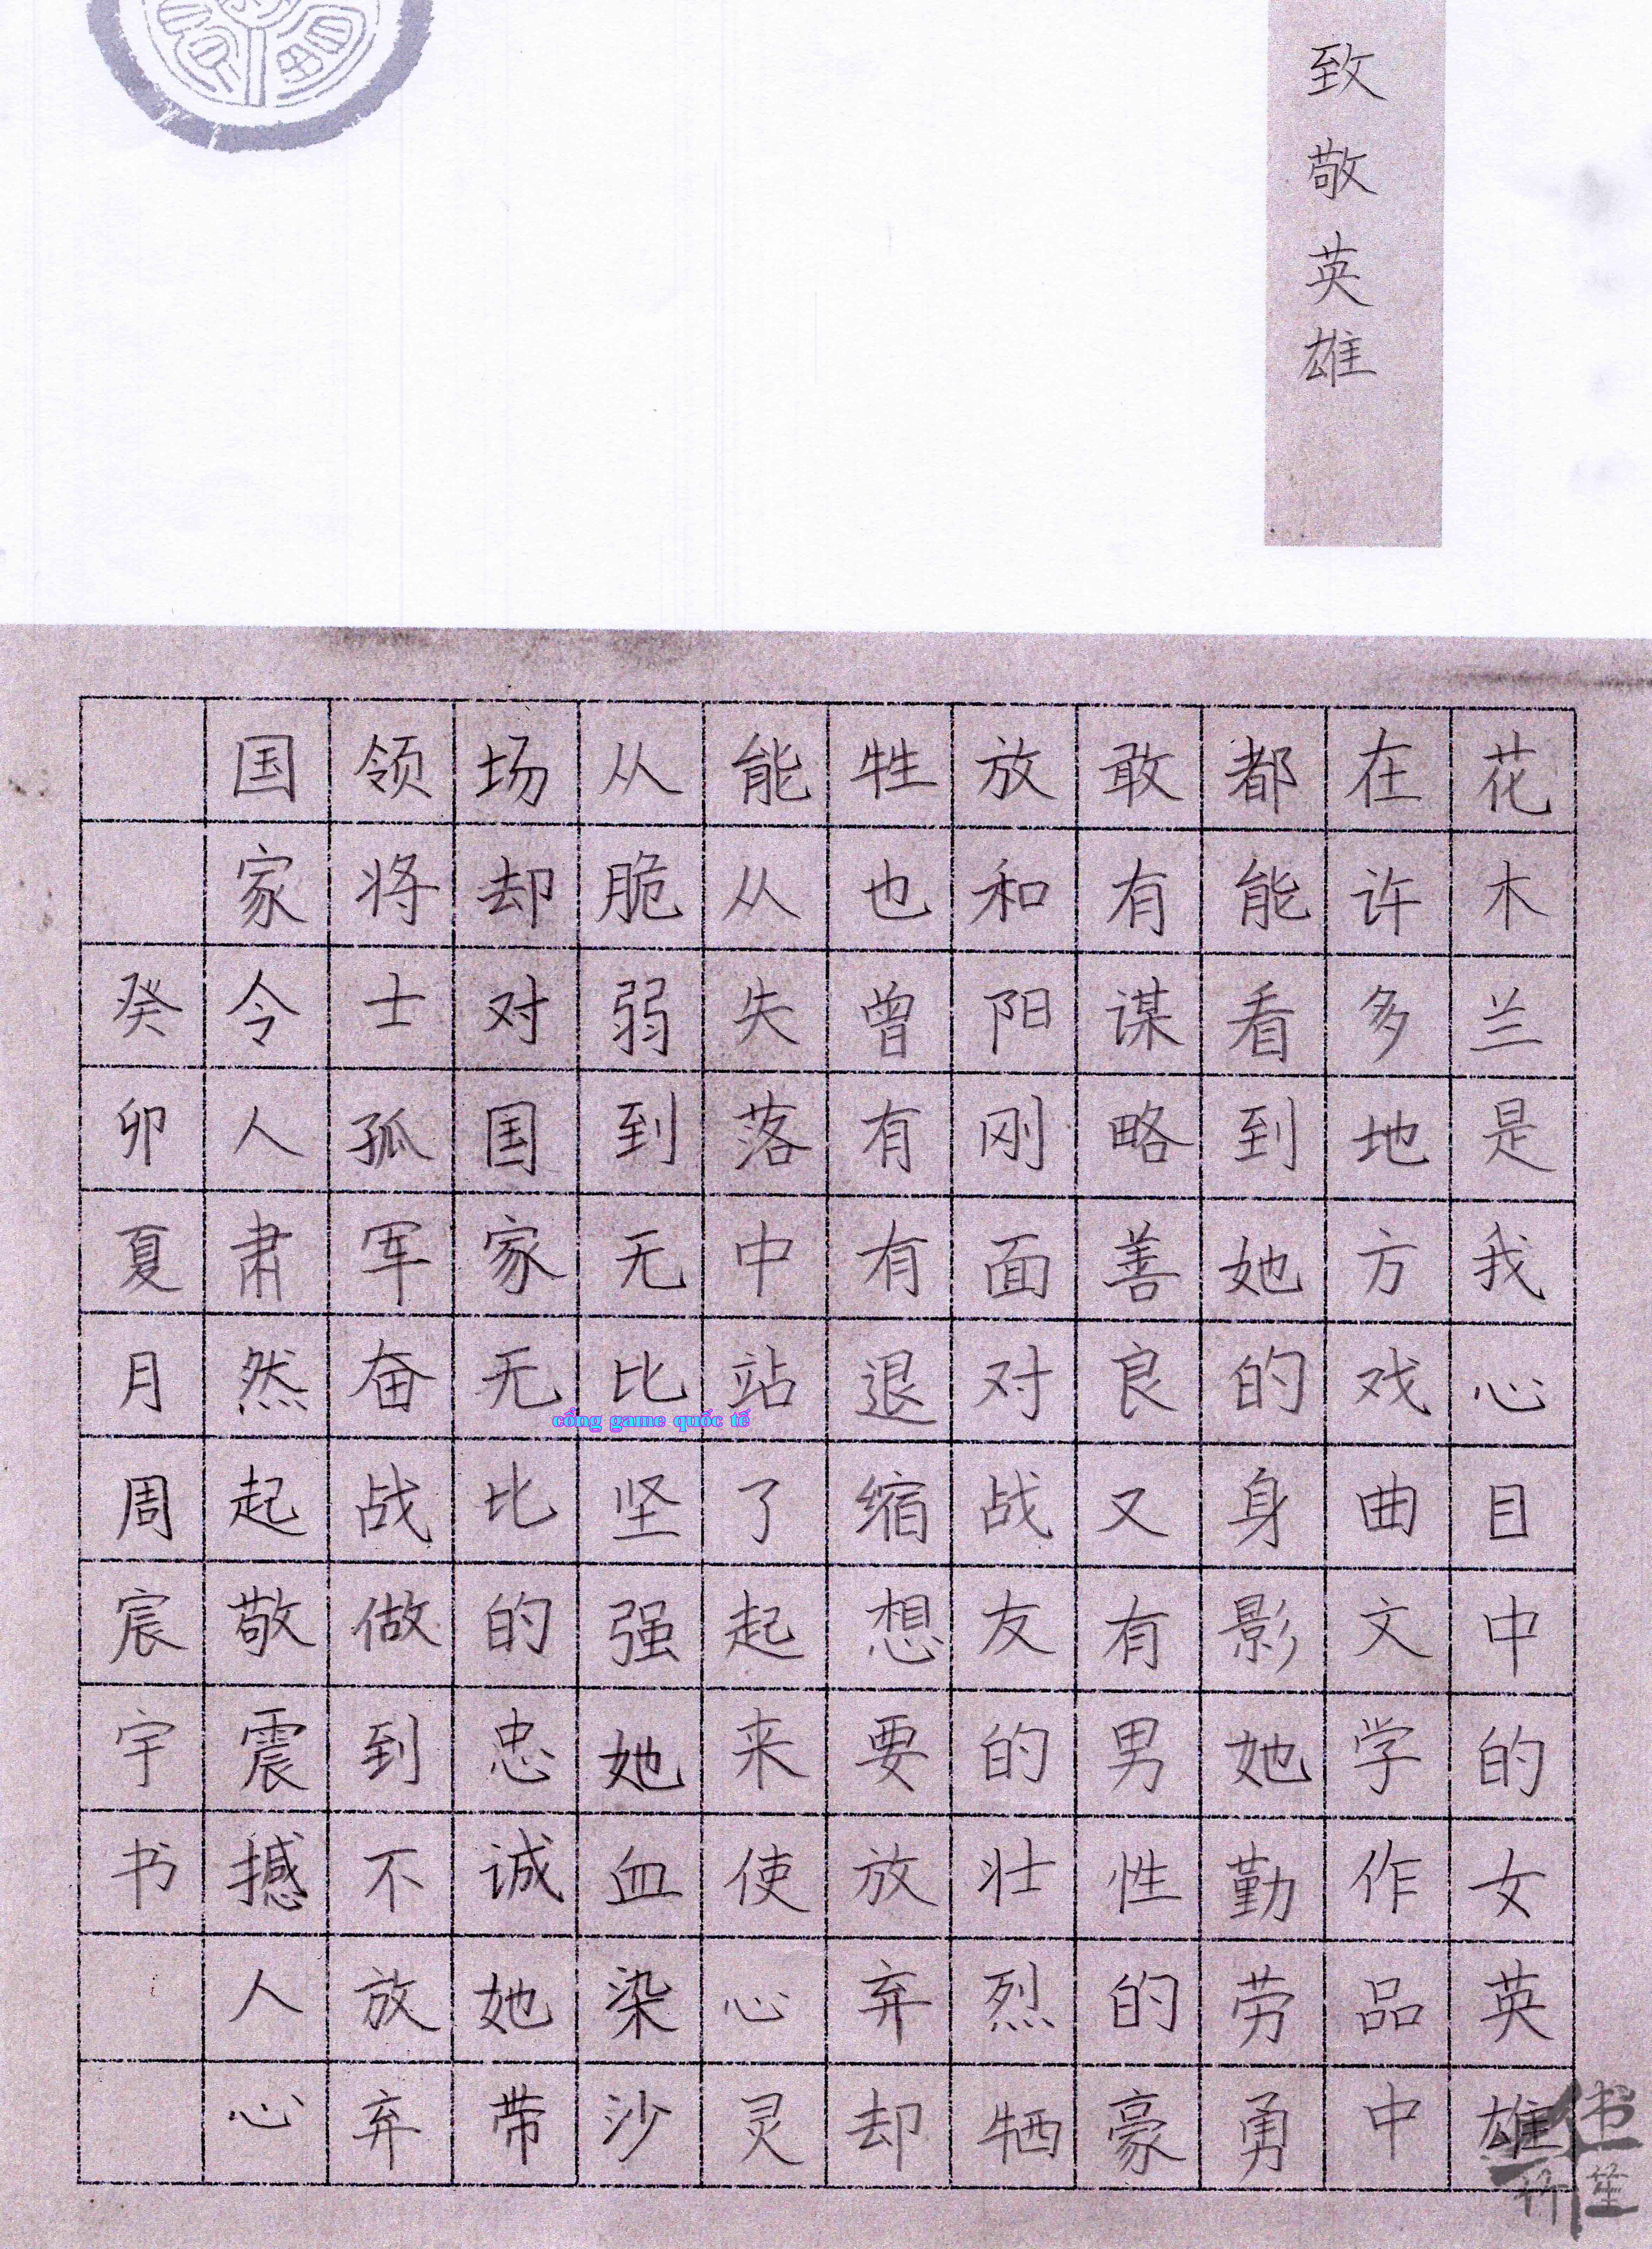 致敬英雄
花木兰是我心目中的女英雄
在许多地方戏曲文学作品中
都能看到她的身影她勤劳勇
敢有谋略善良又有男性的豪
放和阳刚面对战友的壮烈牺
牲也曾有有退缩想要放弃却
能从失落中站了起来使心灵
从脆弱到无比坚强她血染沙
场却对国家无比的忠诚她带
领将士孤军奋战做到不放弃
国家令人肃然起敬震撼人心
癸卯夏月周宸宇书
cổng game quốc tế